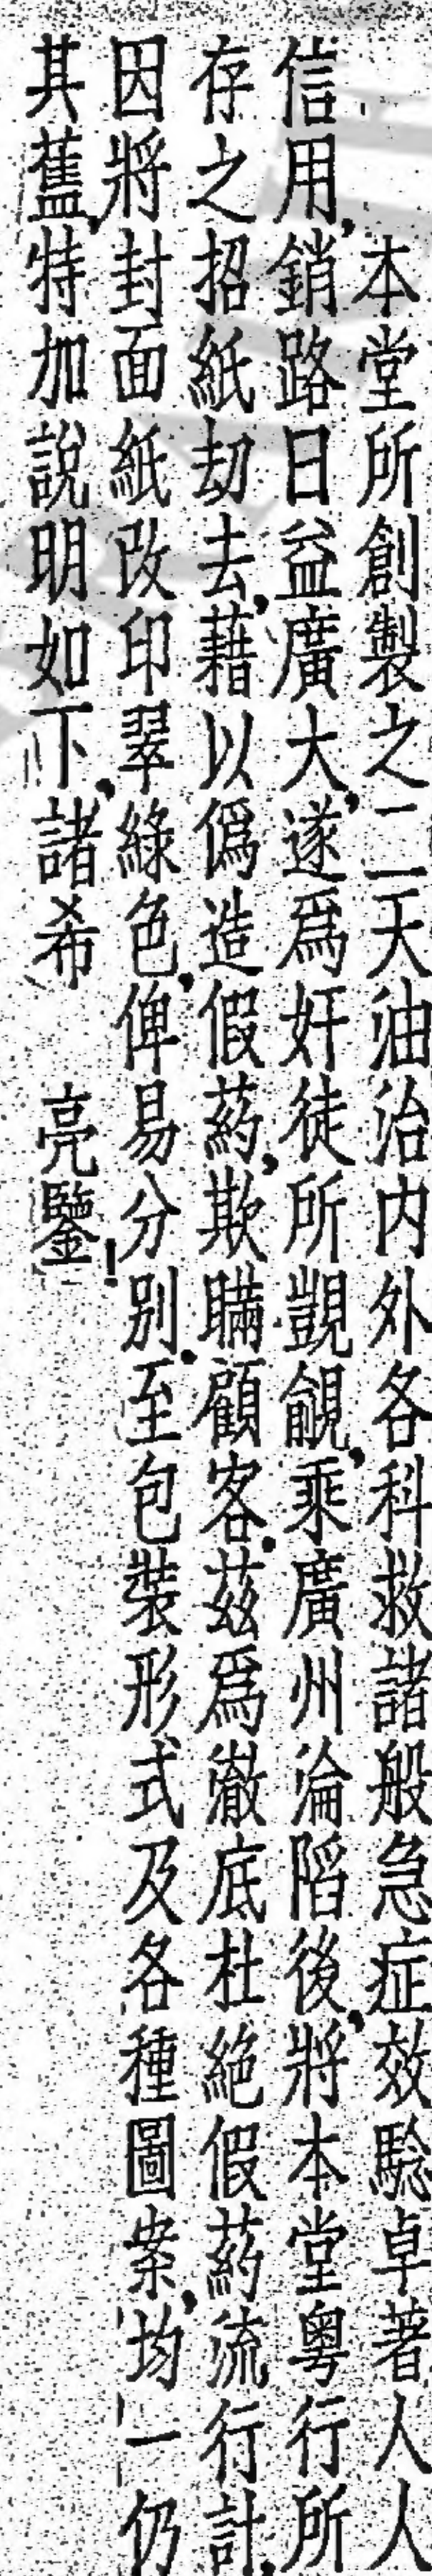 本堂所創製之二天油治内外各科救諸般急症效驗卓著人人
信用,銷路日益廣大,遂爲奸徒所覬覦,乘廣州淪陷後,將本堂粵行所
存之招紙刧去,藉以僞造假葯,欺瞞顧客.茲爲澈底杜絕假葯流行計,
因將封面紙改印翠綠色,俾易分别.至包裝形式及各種圖案,均一仍
其舊,特加說明如下,諸希 亮鑒!